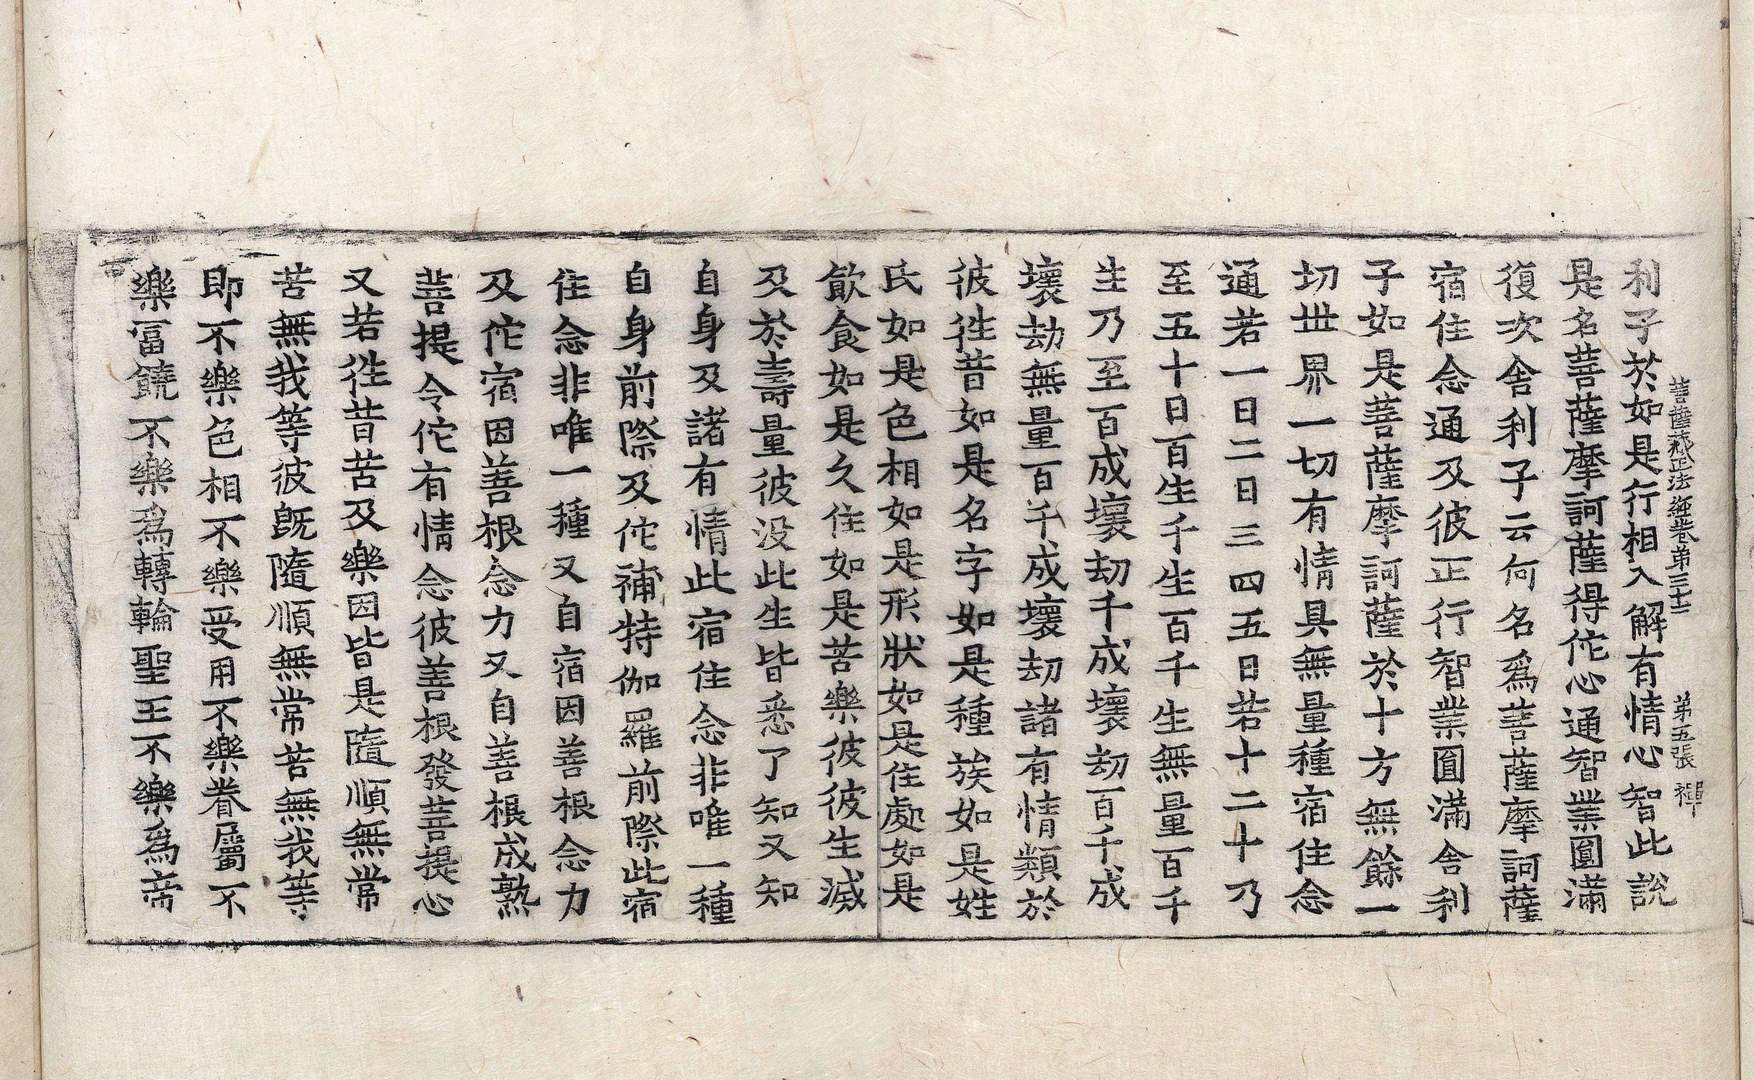 菩薩藏正法經卷第三十二 第五張 禪
利子於如是行相入解有情心智此說
是名菩薩摩訶薩得佗心通智業圓滿
復次舍利子云何名爲菩薩摩訶薩
宿住念通及彼正行智業圓滿舍利
子如是菩薩摩訶薩於十方無餘一
切世界一切有情具無量種宿住念
通若一日二日三四五日若十二十乃
至五十日百生千生百千生無量百千
生乃至百成壞劫千成壞劫百千成
壞劫無量百千成壞劫諸有情類於
彼徃昔如是名字如是種族如是姓
氏如是色相如是形狀如是住處如是
飲食如是久住如是苦樂彼彼生滅
及於壽量彼没此生皆悉了知又知
自身及諸有情此宿住念非唯一種
自身前際及佗補特伽羅前際此宿
住念非唯一種又自宿因善根念力
及佗宿因善根念力又自善根成熟
菩提令佗有情念彼善根發菩提心
又若徃昔苦及樂因皆是隨順無常
苦無我等彼旣隨順無常苦無我等
即不樂色相不樂受用不樂眷屬不
樂冨饒不樂爲轉輪聖王不樂爲帝